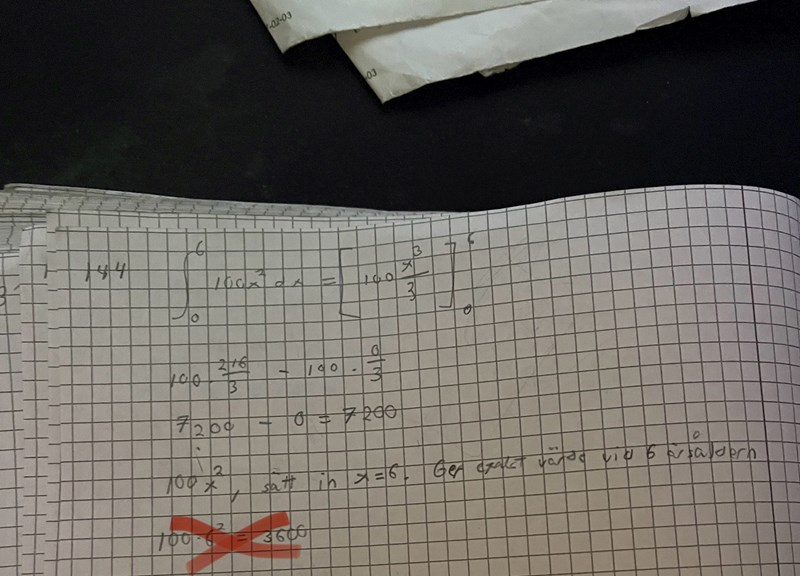 -02-03
03
144 ∫₀⁶ 100x² dx = [100 x³/3]₀⁶
100 · 216/3 − 100 · 0/3
7200 − 0 = 7200
100x², sätt in x=6. Ger exakt värde vid 6 årsåldern
100·6² = 3600